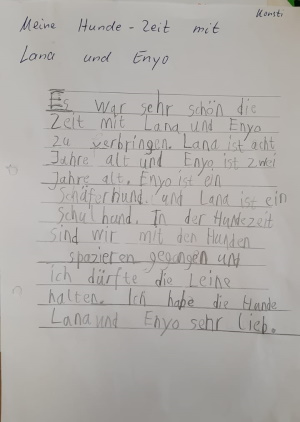 Konsti
Meine Hunde-Zeit mit
Lana und Enyo
Es war sehr schön die
Zeit mit Lana und Enyo
zu verbringen. Lana ist acht
Jahre alt und Enyo ist zwei
Jahre alt. Enyo ist ein
Schäferhund und Lana ist ein
Schulhund. In der Hundezeit
sind wir mit den Hunden
spazieren gegangen und
ich dürfte die Leine
halten. Ich habe die Hunde
Lana und Enyo sehr lieb.